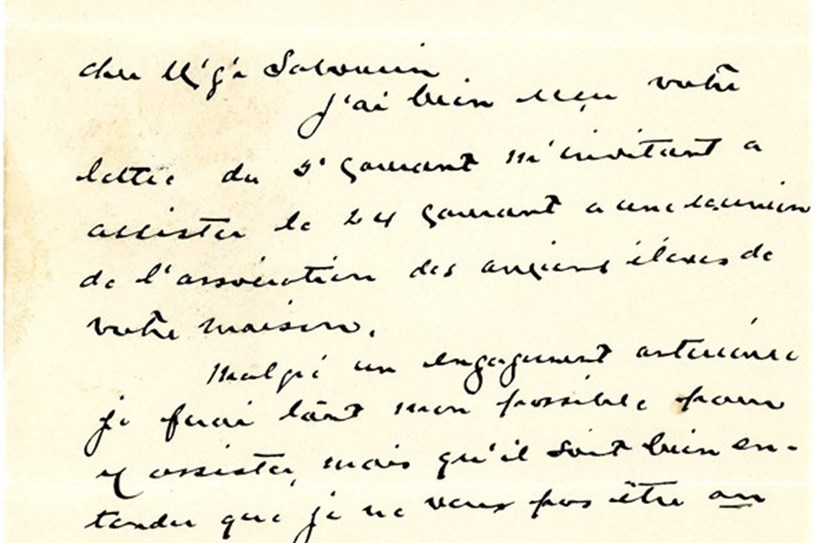 cher
J'ai bien reçu votre
lettre du 5 courant m'invitant a
assister le 24 courant a une reunion
de l'association des anciens élèves de
votre maison.
Malgré un engagement antérieur
je ferai tout mon possible pour
y assister, mais qu'il soit bien en-
tendu que je ne veux pas être